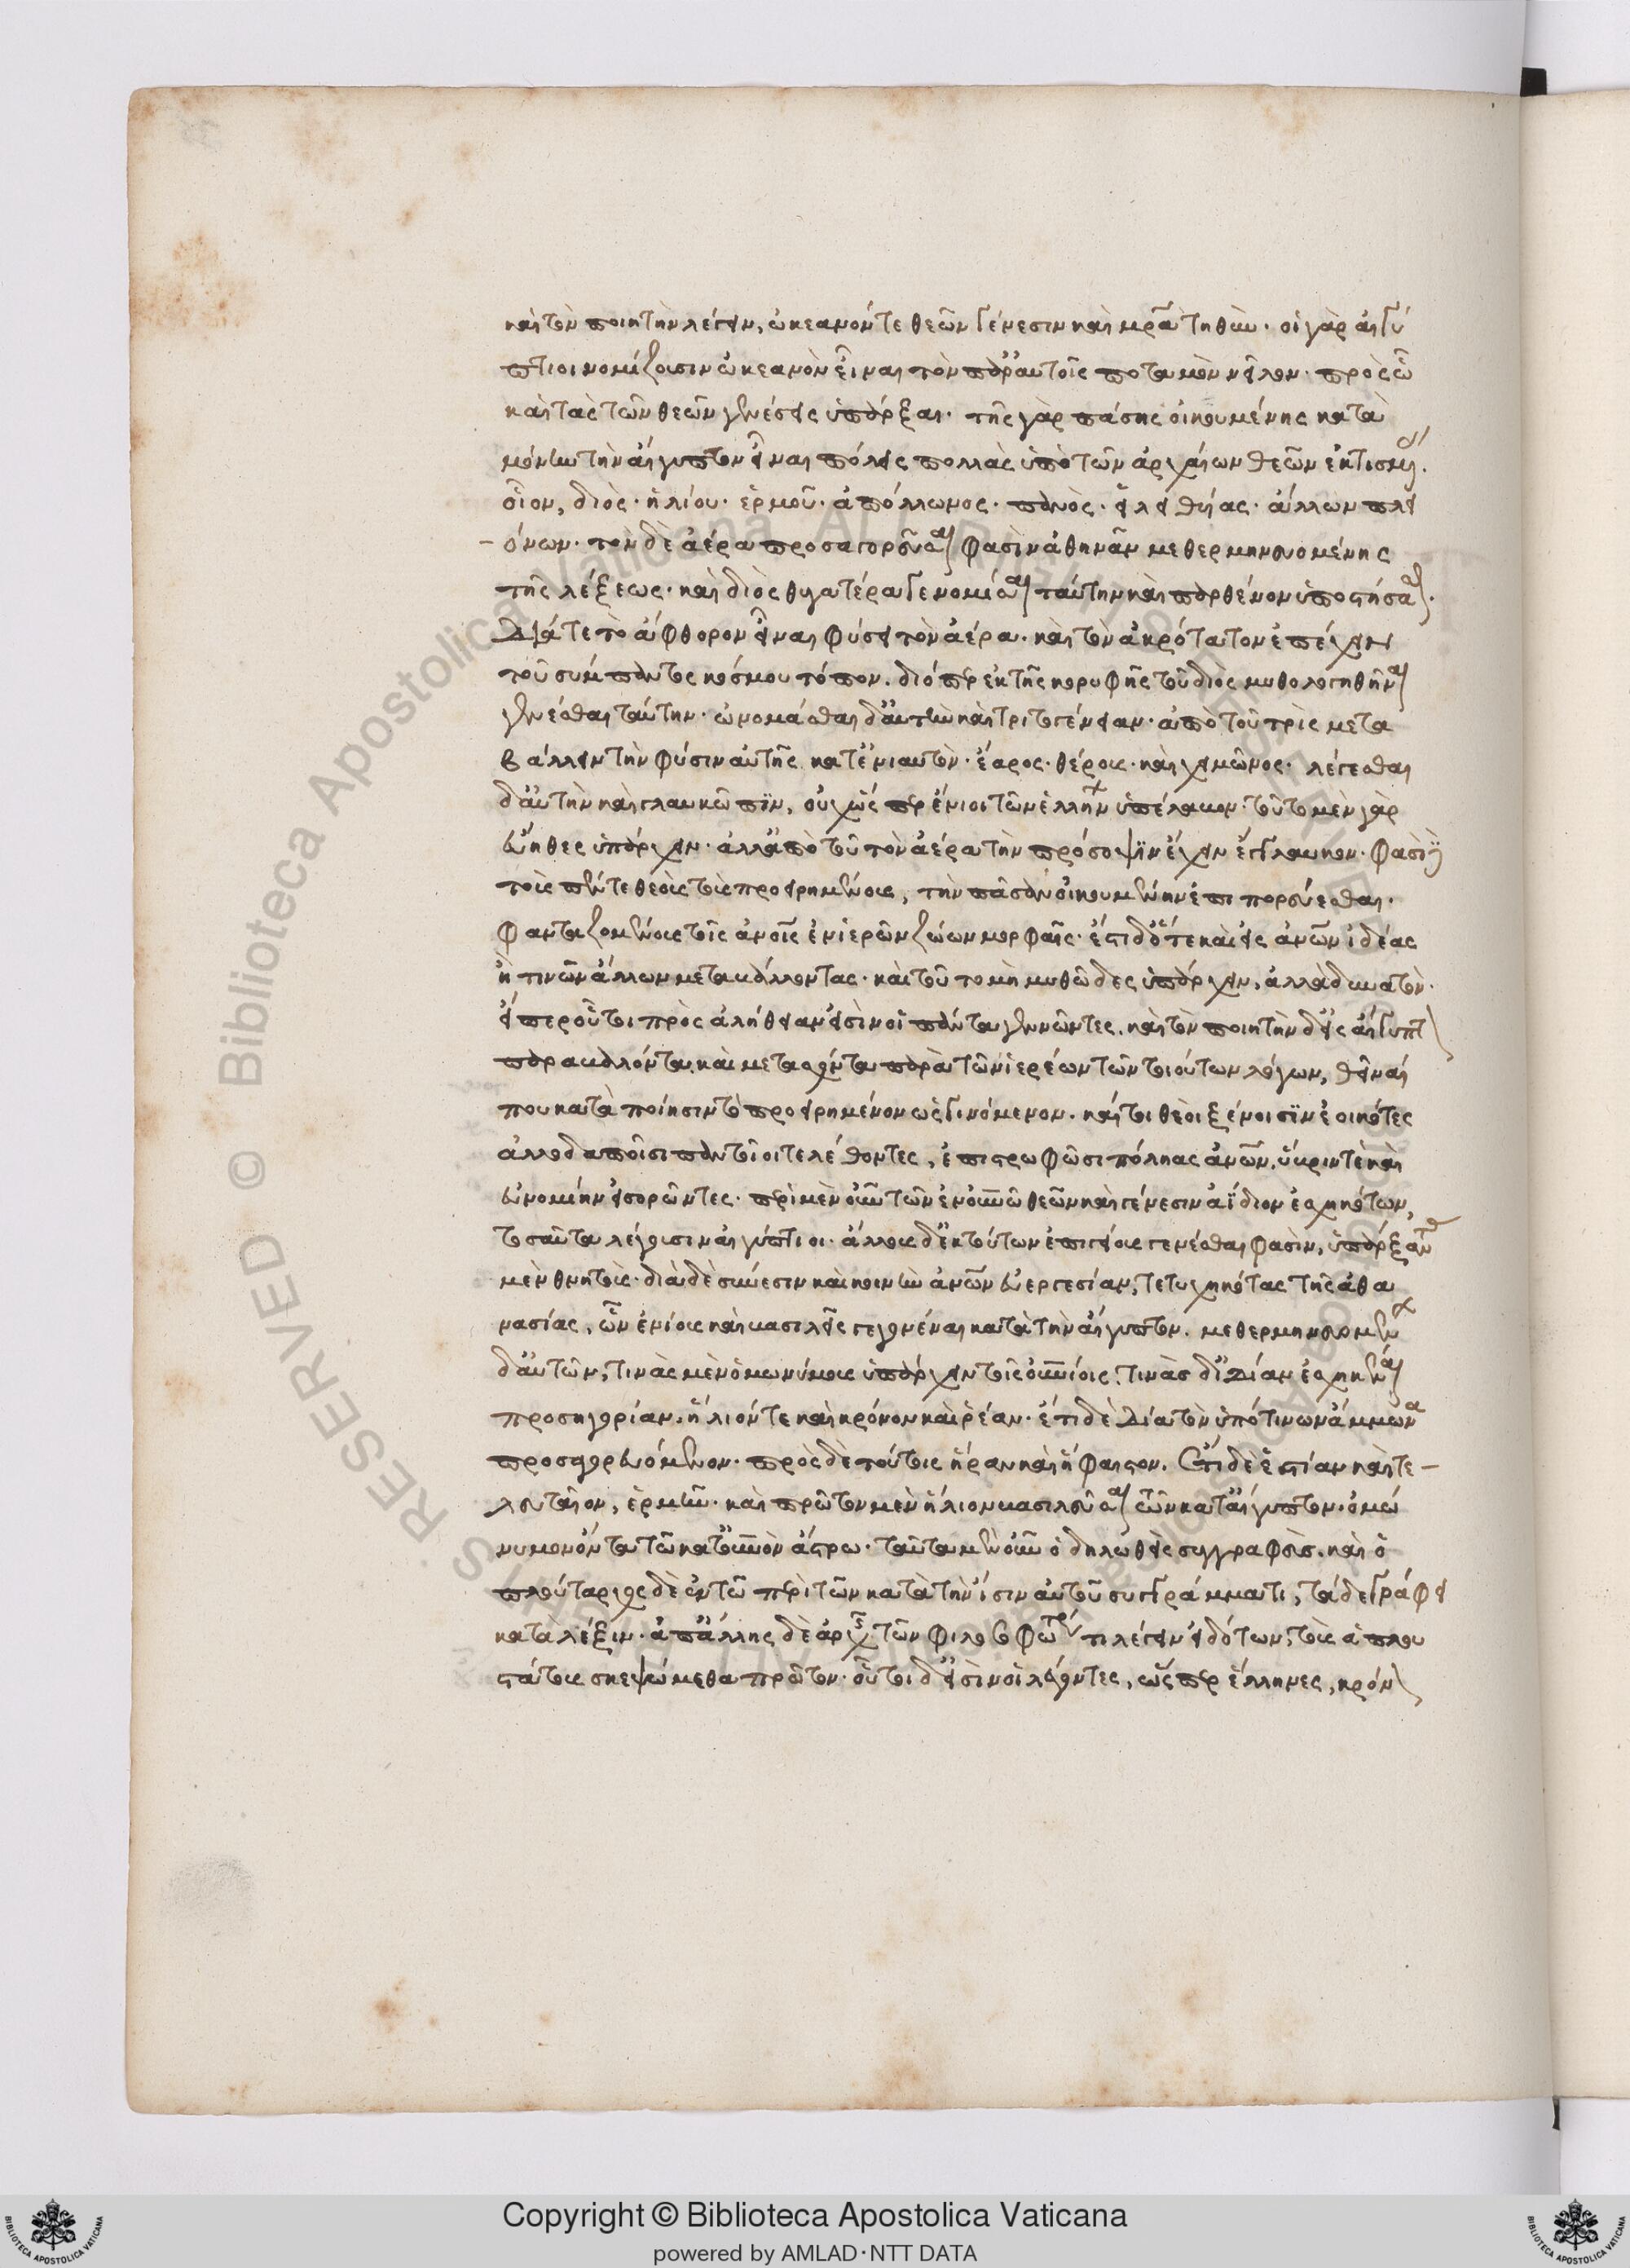 καὶ τὸν ποιητὴν λέγειν, ὠκεανόν τε θεῶν γένεσιν καὶ μρ̅α τηθύν· οἱ γὰρ αἰγύ
πτιοι νομίζουσιν ὠκεανὸν εἶναι τὸν παρ' αὐτοῖς ποταμὸν νεῖλον· πρὸς ὧ
καὶ τὰς τῶν θεῶν γενέσεις ὑπάρξαι· τῆς γὰρ πάσης οἰκουμένης κατὰ
μόνην τὴν αἴγυπτον εἶναι πόλεις πολλὰς ὑπὸ τῶν ἀρχαίων θεῶν ἐκτισμέ.
οἷον, διὸς· ἡλίου· ἑρμοῦ· ἀπόλλωνος· πανὸς· εἰλειθυίας· ἄλλων πλει
όνων· τὸν δὲ ἀέρα προσαγορεῦσαι φασὶν ἀθηνᾶν μεθερμηνευομένης
τῆς λέξεως· καὶ διὸς θυγατέρα γενομίσαι ταύτην καὶ παρθένον ὑποστήσασθαι.
διά τε τὸ ἄφθορον εἶναι φύσει τὸν ἀέρα· καὶ τὸν ἀκρότατον ἐπέχειν
τοῦ σύμπαντος κόσμου τόπον. διόπερ ἐκ τῆς κορυφῆς τοῦ διὸς μυθολογηθῆναι
γενέσθαι ταύτην· ὠνομάσθαι δ' αὐτὴν καὶ τριτογένειαν· ἀπὸ τοῦ τρὶς μετα
βάλλειν τὴν φύσιν αὐτῆς κατ' ἐνιαυτὸν· ἔαρος· θέρους· καὶ χειμῶνος· λέγεσθαι
δ' αὐτὴν καὶ γλαυκῶπϊν, οὐχ ὥς περ ἔνιοι τῶν ἑλλήν ὑπέλαβον· τοῦτο μὲν γὰρ
εὔηθες ὑπάρχειν· ἀλλ' ἀπὸ τοῦ τὸν ἀέρα τὴν πρόσοψϊν ἔχειν ἔγγλαυκον· φασὶ δὲ
τοὺς πέντε θεοὺς τοὺς προειρημένους, τὴν πᾶσαν οἰκουμένην ἐπιπορεύεσθαι·
φανταζομένους τοῖς ἀνοῖς ἐν ἱερῶν ζώων μορφαῖς· ἔστι δ' ὅτε καὶ εἰς ἀνῶν ἰδέας
ἤ τινῶν ἄλλων μεταβάλλοντας· καὶ τοῦτο μὴ μυθῶδες ὑπάρχειν, ἀλλὰ δυνατὸν·
εἴπερ οὗτοι πρὸς ἀλήθειαν εἰσὶν οἱ πάντα γεννῶντες. καὶ τὸν ποιητὴν δ' εἰς αἴγυπτ
παραβαλόντα καὶ μετασχόντα παρὰ τῶν ἱερέων τῶν τοιούτων λόγων, θεῖναί
που κατὰ ποίησιν τὸ προειρημένον ὡς γινόμενον. καί τοι θεοὶ ξείνοισϊν ἐοικότες
ἀλλοδαποῖσι παντοῖοι τελέθοντες, ἐπιστρωφῶσι πόληας ἀνῶν. ὕβριν τὲ καὶ
εὐνομίην εἰσορῶντες· περὶ μὲν οὖν τῶν ἐν ουνω θεῶν καὶ γένεσιν ἀΐδιον ἐσχηκότων,
τοσαῦτα λέγουσιν αἰγύπτιοι· ἄλλους δ' ἐκ τούτων ἐπιγείους γενέσθαι φασὶν, ὑπάρξαντ
μὲν θνητοὺς· διὰ δὲ σύνεσιν καὶ κοινὴν ἀνῶν εὐεργεσίαν, τετυχηκότας τῆς ἀθα
νασίας, ὧν ἐνίους καὶ βασιλεῖς γεγονέναι κατὰ τὴν αἴγυπτον. μεθερμηνευομέν
δ' αὐτῶν, τινὰς μὲν ὁμωνύμους ὑπάρχειν τοῖς ουνίοις. τινὰς δ' ἰδίαν ἐσχηκέναι
προσηγορίαν. ἥλιόν τε καὶ κρόνον καὶ ῥέαν· ἔτι δὲ δία τὸν ὑπό τινων ἄμμωνα
προσαγορευόμενον· πρὸς δὲ τούτοις ἥραν καὶ ἥφαιστον. ἔτι δὲ ἑστίαν καὶ τε
λευταῖον, ἑρμῆν· καὶ πρῶτον μὲν ἥλιον βασιλεῦσαι τῶν κατ' αἴγυπτον· ὁμώ
νυμον ὄντα τῶ κατ' ουνὸν ἄστρω· ταῦτα μὲν οὖν ὁ δηλωθεὶς συγγραφεὺς. καὶ ὁ
πλούταρχος δὲ ἐν τῶ περὶ τῶν κατὰ τὴν ἴσιν αὐτοῦ συγγράμματι, τάδε γράφει
κατὰ λέξιν· ἀπ' ἄλλης δὲ ἀρχῆς τῶν φιλοσοφώτερόν τι λέγειν εἰδότων, τοὺς ἁπλου
στάτους σκεψώμεθα πρῶτον· οὗτοι δ' εἰσὶν οἱ λέγοντες, ὥς περ ἕλληνες, κρόν